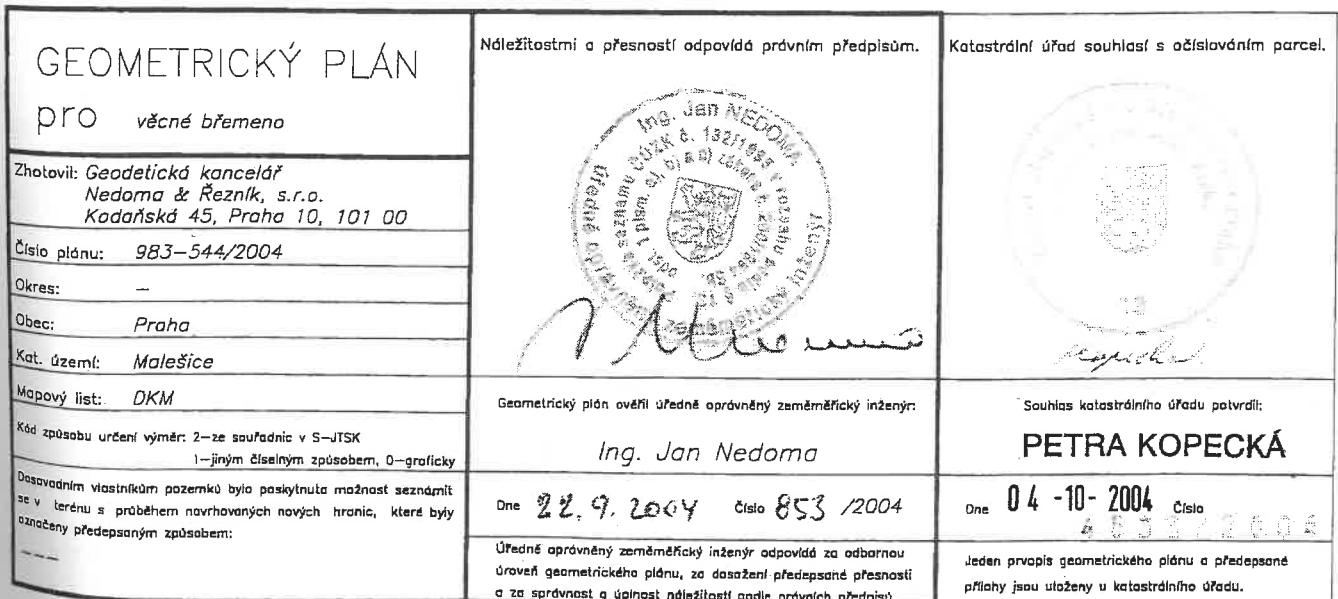 GEOMETRICKÝ PLÁN
pro věcné břemeno
Zhotovil: Geodetická kancelář
Nedoma & Řezník, s.r.o.
Kodaňská 45, Praha 10, 101 00
Číslo plánu: 983-544/2004
Okres: —
Obec: Praha
Kat. území: Malešice
Mapový list: DKM
Kód způsobu určení výměr: 2-ze souřadnic v S-JTSK
1-jiným číselným způsobem, 0-graficky
Dosavadním vlastníkům pozemků byla poskytnuta možnost seznámit
se v terénu s průběhem navrhovaných nových hranic, které byly
označeny předepsaným způsobem:
---
Náležitostmi a přesností odpovídá právním předpisům.
Ing. Jan NEDOMA
úředně oprávněný zeměměřický inženýr
Geometrický plán ověřil úředně oprávněný zeměměřický inženýr:
Ing. Jan Nedoma
Dne 22. 9. 2004 číslo 853 /2004
Úředně oprávněný zeměměřický inženýr odpovídá za odbornou
úroveň geometrického plánu, za dosažení předepsané přesnosti
a za správnost a úplnost náležitostí podle právních předpisů
Katastrální úřad souhlasí s očíslováním parcel.
Souhlas katastrálního úřadu potvrdil:
PETRA KOPECKÁ
Dne 04 -10- 2004 číslo
Jeden prvopis geometrického plánu a předepsané
přílohy jsou uloženy u katastrálního úřadu.